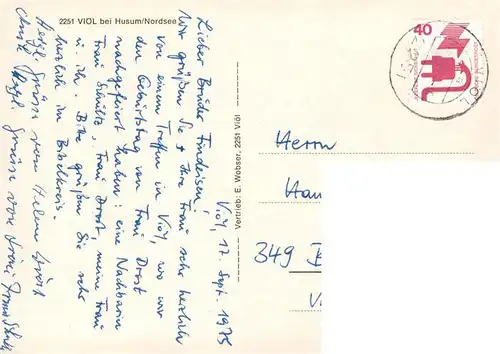 2251 VIÖL bei Husum/Nordsee
Viöl, 12. Sept. 1975
Lieber Bruder Findeisen,
wir grüßen Sie + Ihre Frau sehr herzlich
von einem Treffen in Viöl, wo wir
den Geburtstag von Frau Drost
nachgefeiert haben: eine Nachbarin
Frau Schultz, Frau Drost, meine Frau
u. ich. Bitte grüßen Sie sehr
herzlich im Bibelkreis.
Herzl. Grüße von Helene Drost
Herzl. Grüße von
Vertrieb: E. Webser, 2251 Viöl
40
Herrn
349